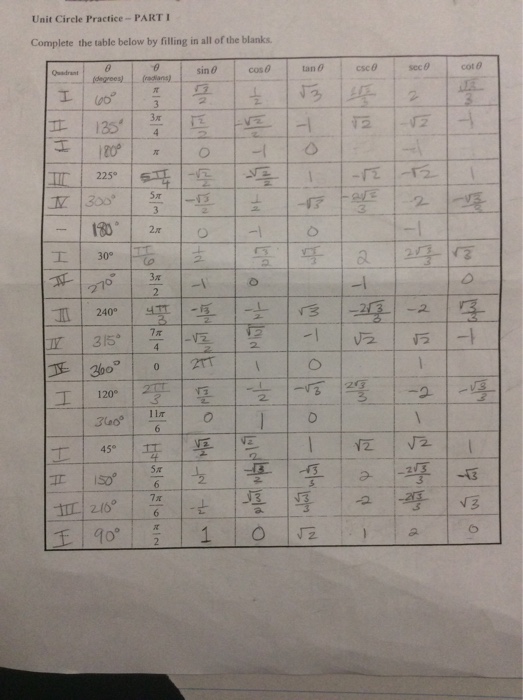 Unit Circle Practice - PART I
Complete the table below by filling in all of the blanks.
Quadrant θ (degrees) θ (radians) sin θ cos θ tan θ csc θ sec θ cot θ
I 60° π/3 √3/2 1/2 √3 2√3/3 2 √3/3
II 135° 3π/4 √2/2 -√2/2 -1 √2 -√2 -1
I 180° π 0 -1 0 -1
III 225° 5π/4 -√2/2 -√2/2 1 -√2 -√2 1
IV 300° 5π/3 -√3/2 1/2 -√3 -2√3/3 2 -√3/3
- 180° 2π 0 -1 0 -1
I 30° π/6 1/2 √3/2 √3/3 2 2√3/3 √3
IV 270° 3π/2 -1 0 -1 0
III 240° 4π/3 -√3/2 -1/2 √3 -2√3/3 -2 √3/3
IV 315° 7π/4 -√2/2 √2/2 -1 √2 √2 -1
IV 360° 0 2π 1 0 1
I 120° 2π/3 √3/2 -1/2 -√3 2√3/3 -2 -√3/3
360° 11π/6 0 1 0 1
I 45° π/4 √2/2 √2/2 1 √2 √2 1
II 150° 5π/6 1/2 -√3/2 -√3/3 2 -2√3/3 -√3
III 210° 7π/6 -1/2 -√3/2 √3/3 -2 -2√3/3 √3
I 90° π/2 1 0 √2 1 2 0